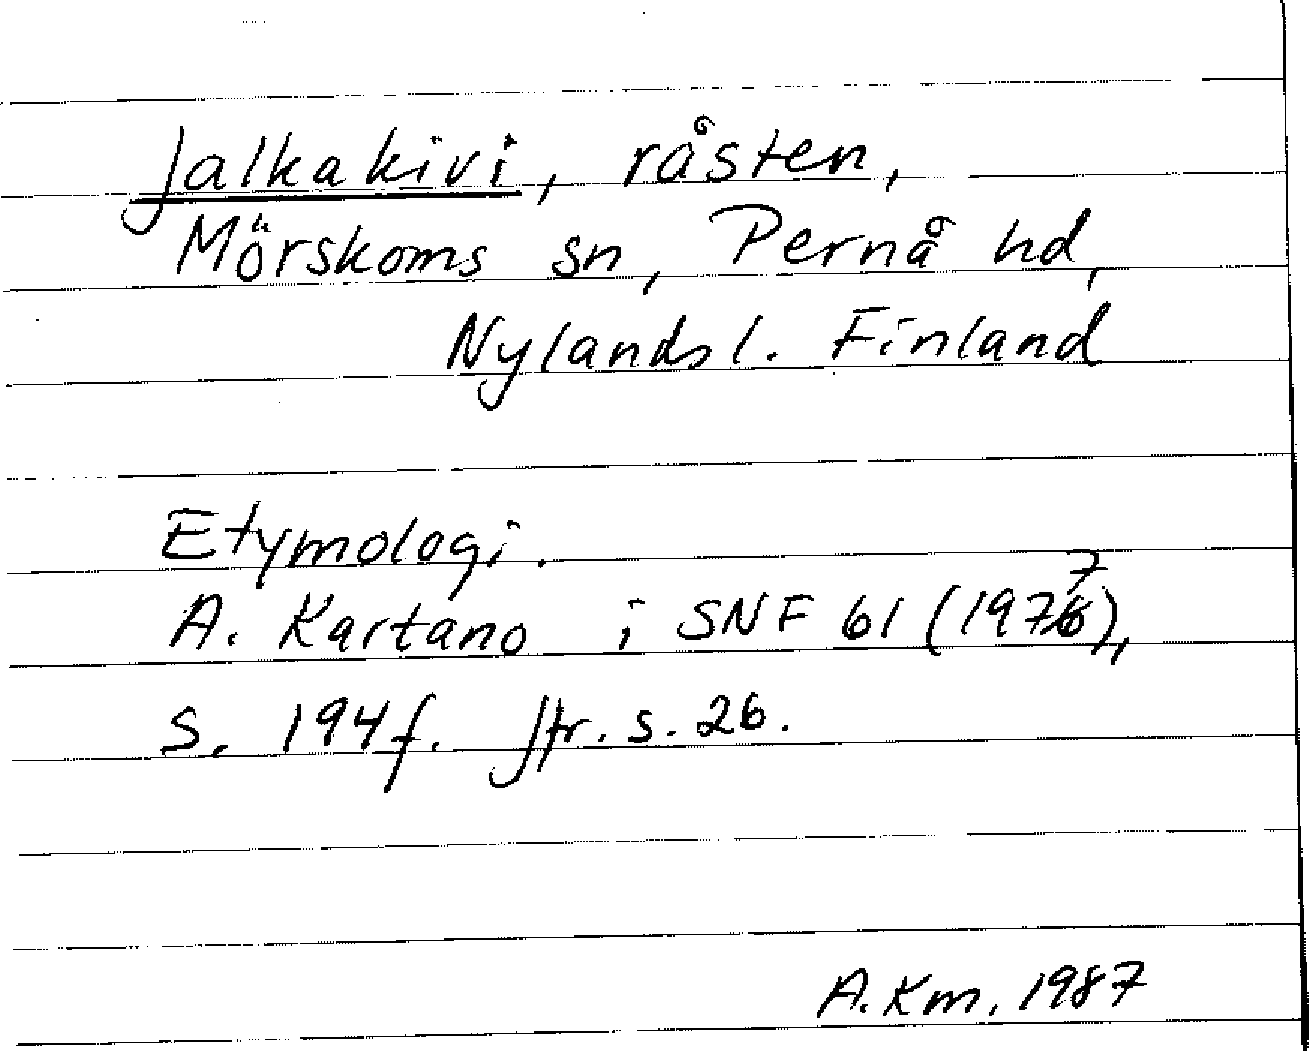 Jalkakivi, råsten,
Mörskoms sn, Pernå hd,
Nylands l. Finland
Etymologi.
A. Kartano i SNF 61 (1977),
s. 194f. Jfr. s. 26.
A. Km. 1987